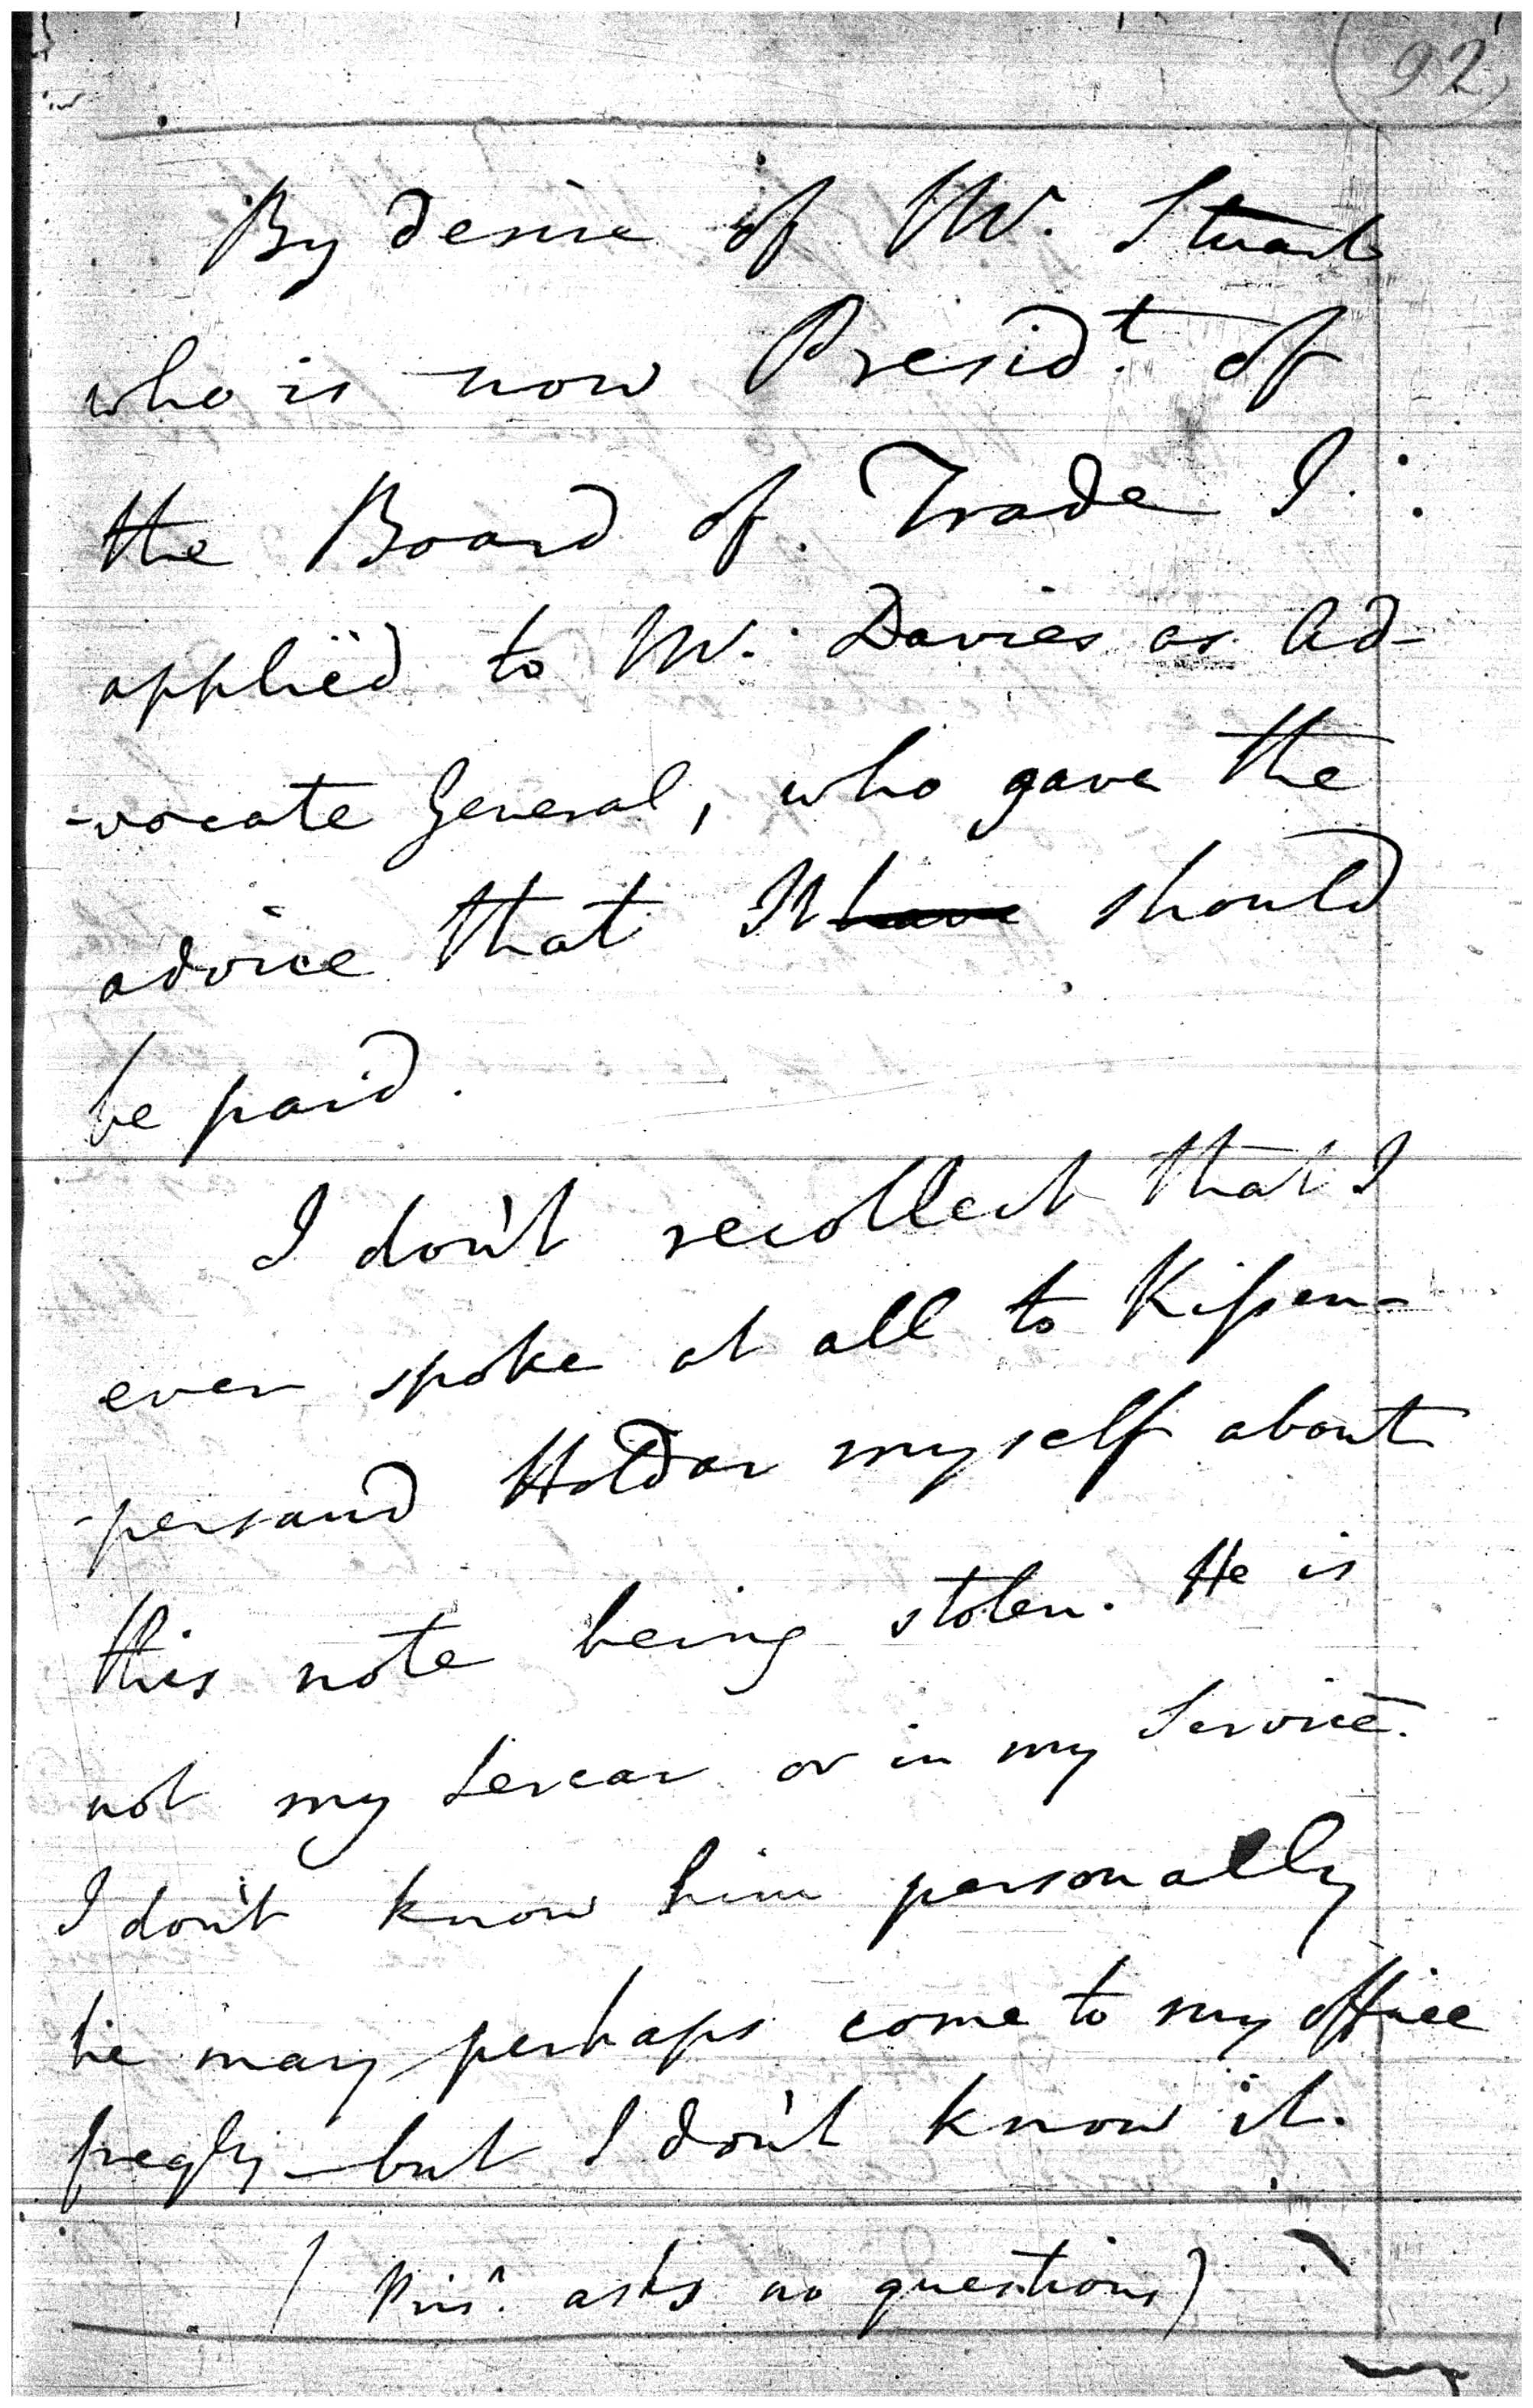 92
By desire of Mr. Stuart
who is now Presidt. of
the Board of Trade I
applied to Mr. Davies as Ad-
-vocate General, who gave the
advice that It have should
be paid.
I don't recollect that I
ever spoke at all to Kissen-
-persaud Holdar myself about
this note being stolen. He is
not my Sercar or in my Service.
I don't know him personally
he may perhaps come to my office
freqly – but I don't know it.
( Prisr. asks no questions )